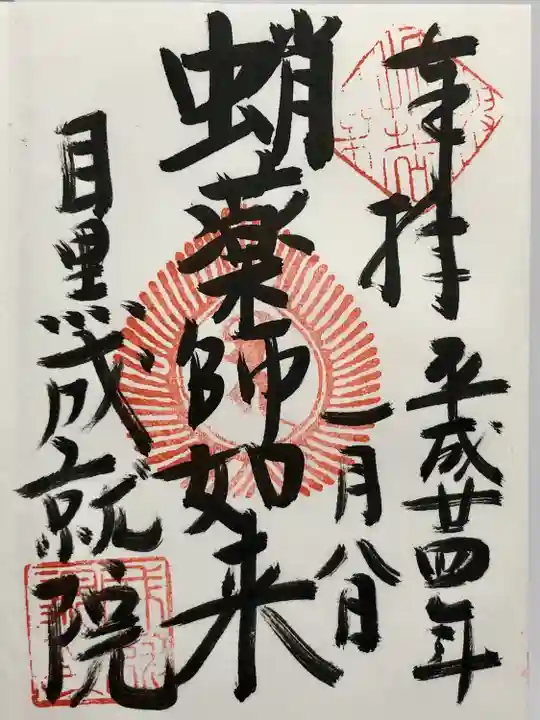 奉拝
平成廿四年
一月八日
蛸薬師如来
目黒成就院